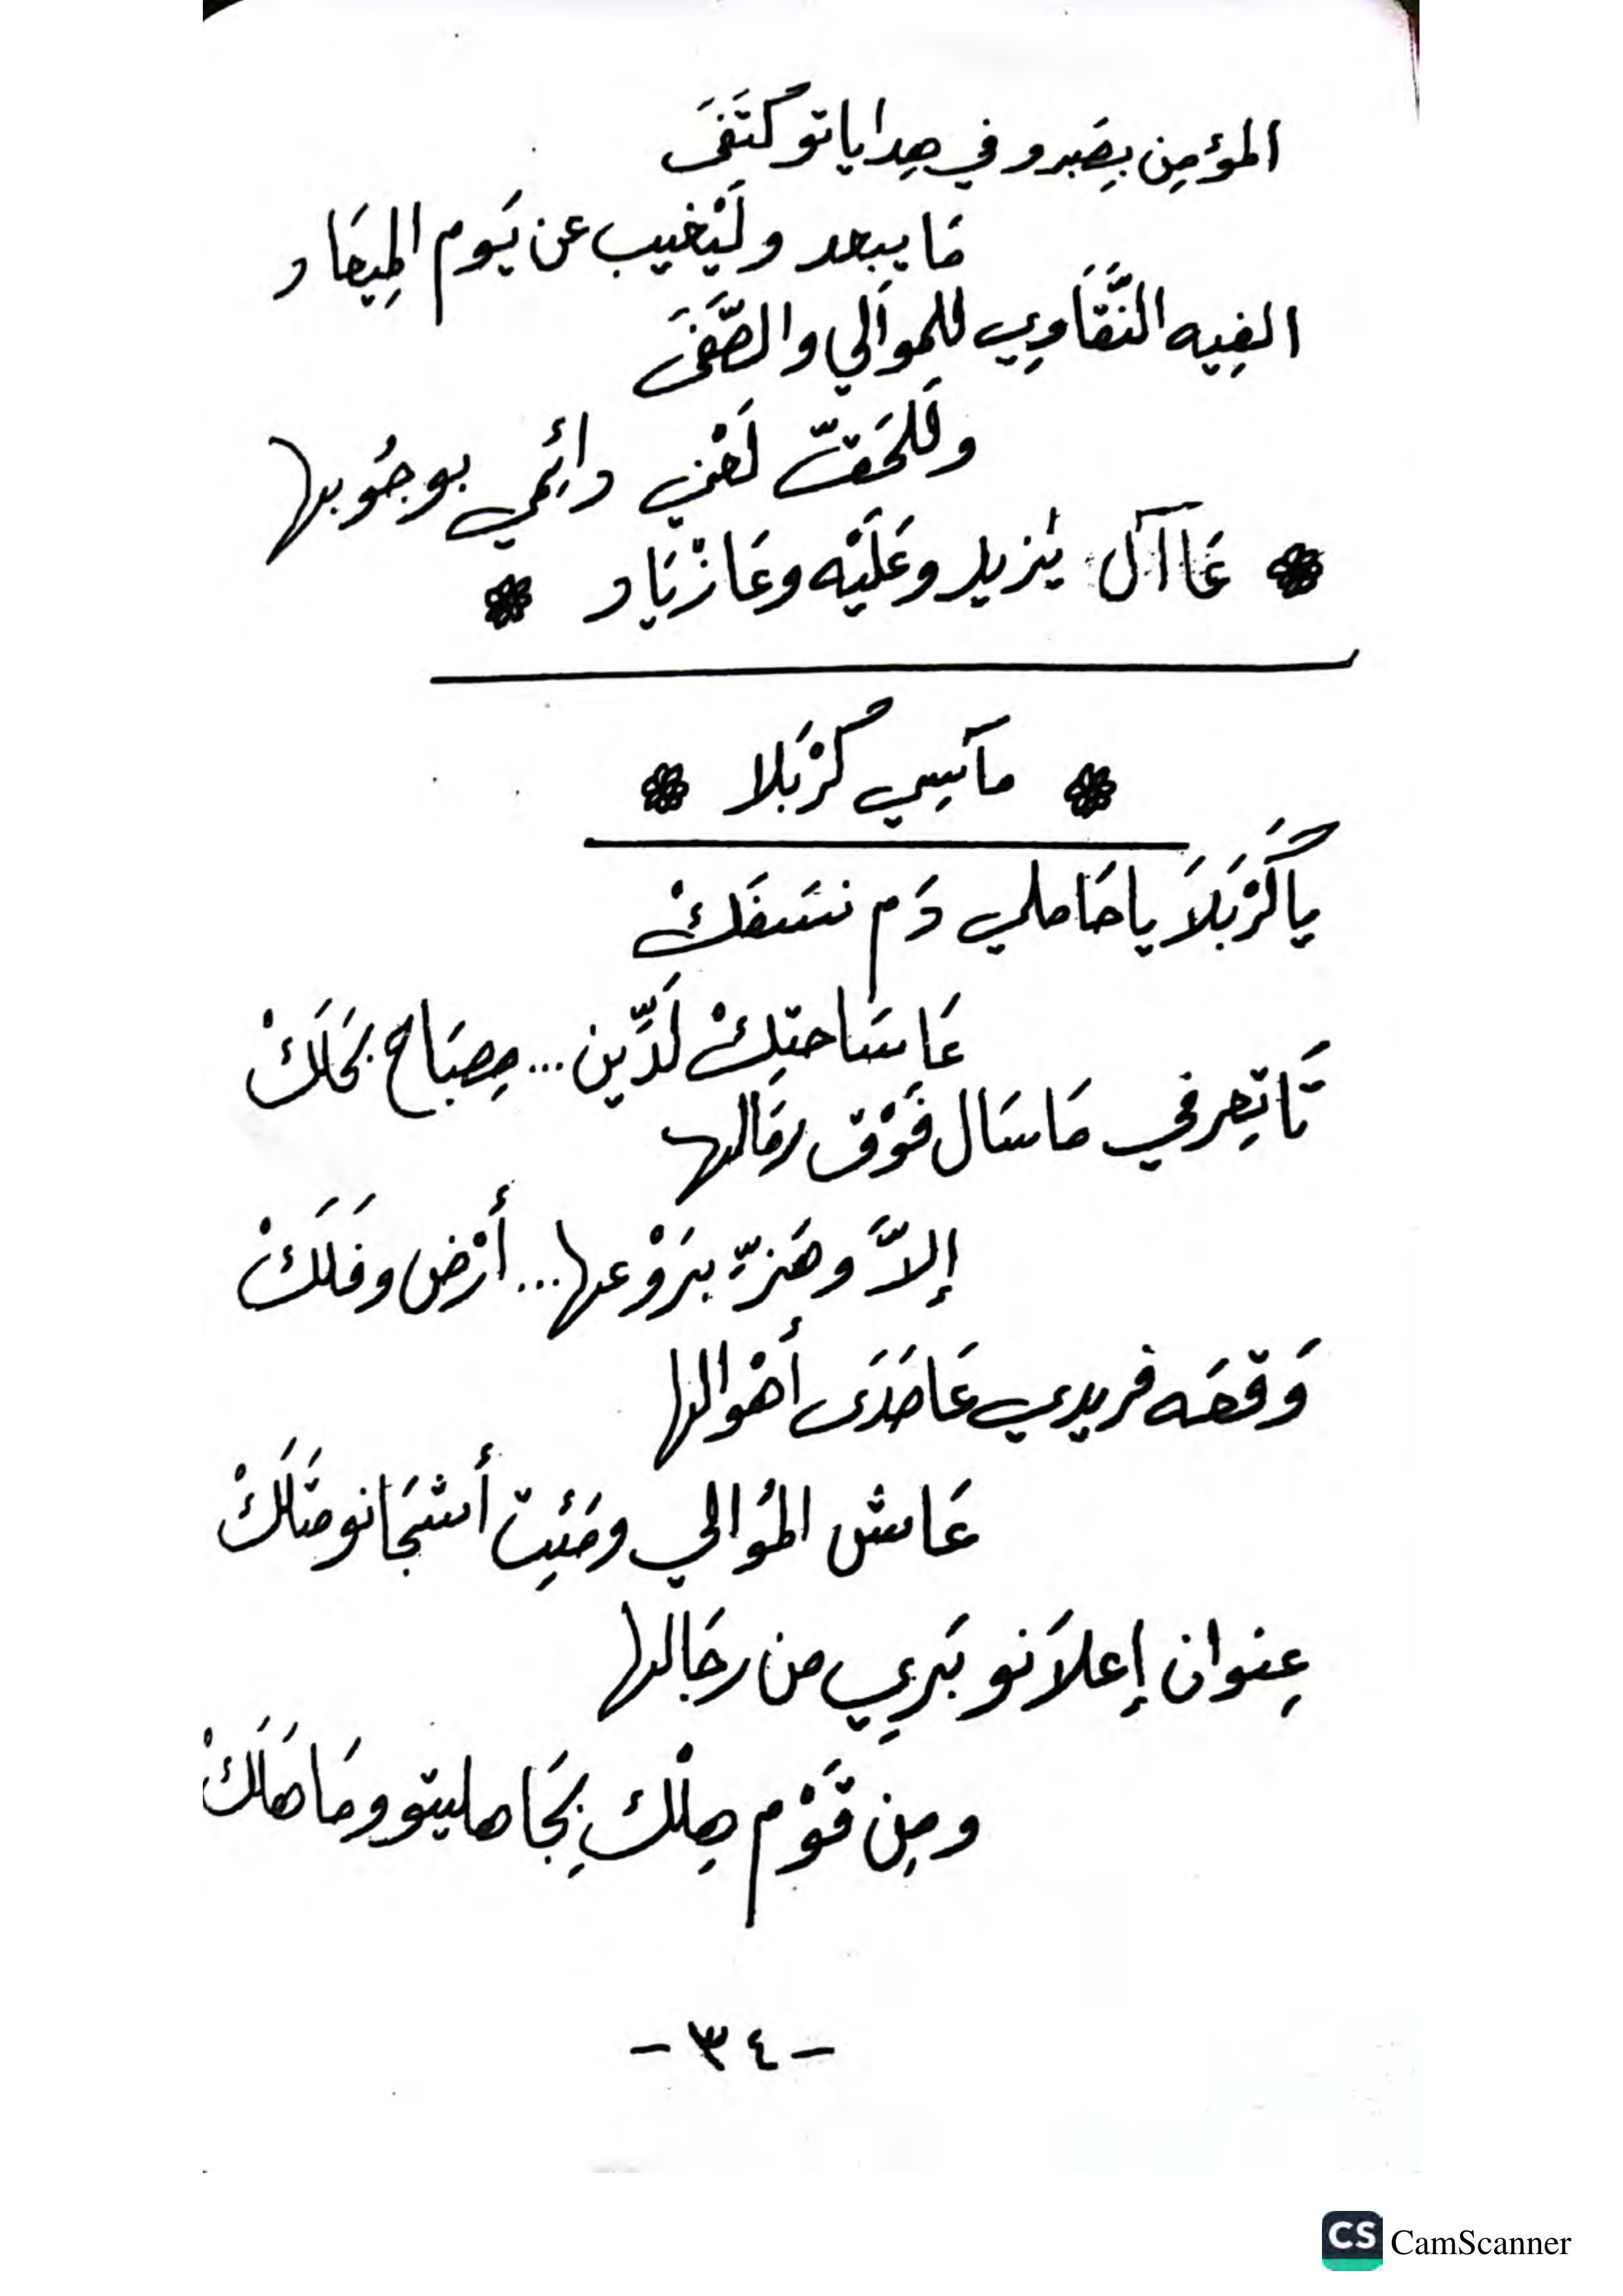 المؤمِن بِصَبرو في هِداياتو كْتَفَى
مَا يبعد ولَيْغيب عن يَوم المِيعَاد
الفِيه النَّقَاوِي للموالي والصَّفَى
وللحَقّ لَعْني دائِمي بوجُوبها
❋ عَا آل يَزيد وعَلَيْه وعَا زْيَاد ❋
❋ مآسِي كَرْبَلا ❋
يا كَرْبَلاَ يا حَاملي دَم نسَفَكْ
عَا سَاحتِكْ لَدِّين... مِصبَاح بحَلَكْ
تَا تِعرفي مَا سَال فَوْق رمَالها
إلاَّ وهَزِّه بتروْعها... أرْض وفَلَكْ
وَقعَه فريدي عَا مَدَى أهْوالها
عَاش المُوالي ومَيِّت أشجَانو متَلَكْ
عِنوان إعلاَنو بَرِي من رجَالها
ومِن قَوْم هِلْك بِجَاهليتو ومَا هَلَكْ
- ٣٤ -
CS CamScanner